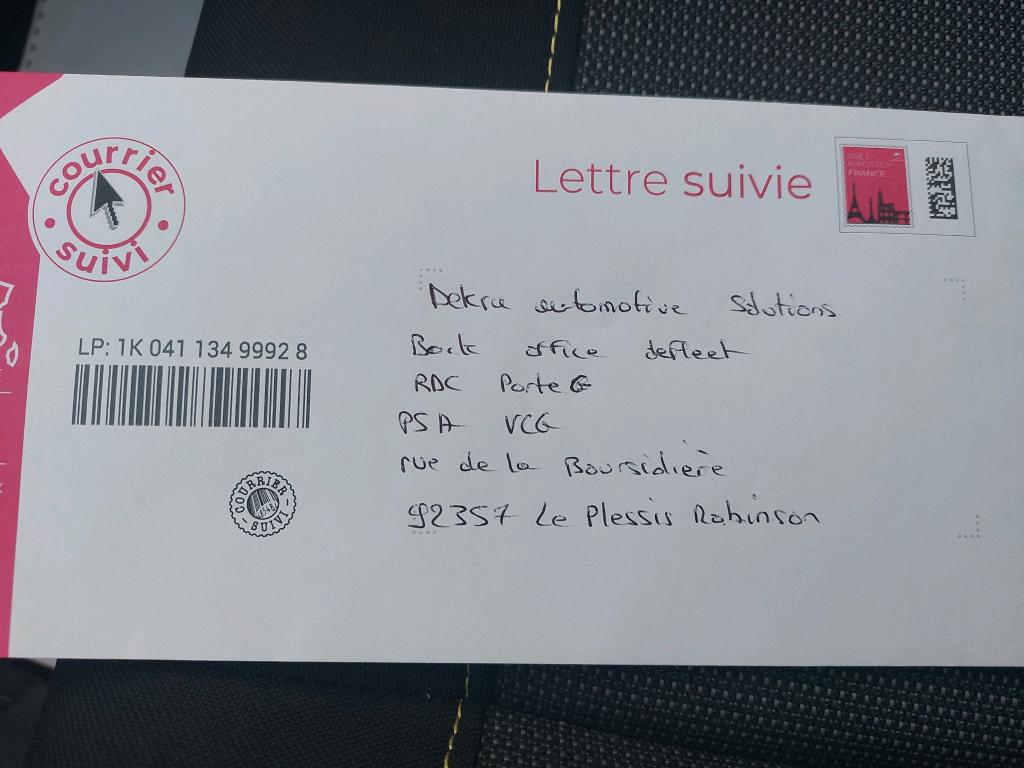 courrier
suivi
Lettre suivie
PRÊT
À POSTER
FRANCE
LP: 1K 041 134 9992 8
COURRIER
SUIVI
Dekra automotive Solutions
Back office defleet
RDC Porte G
PSA VCG
rue de la Boursidière
92357 Le Plessis Robinson